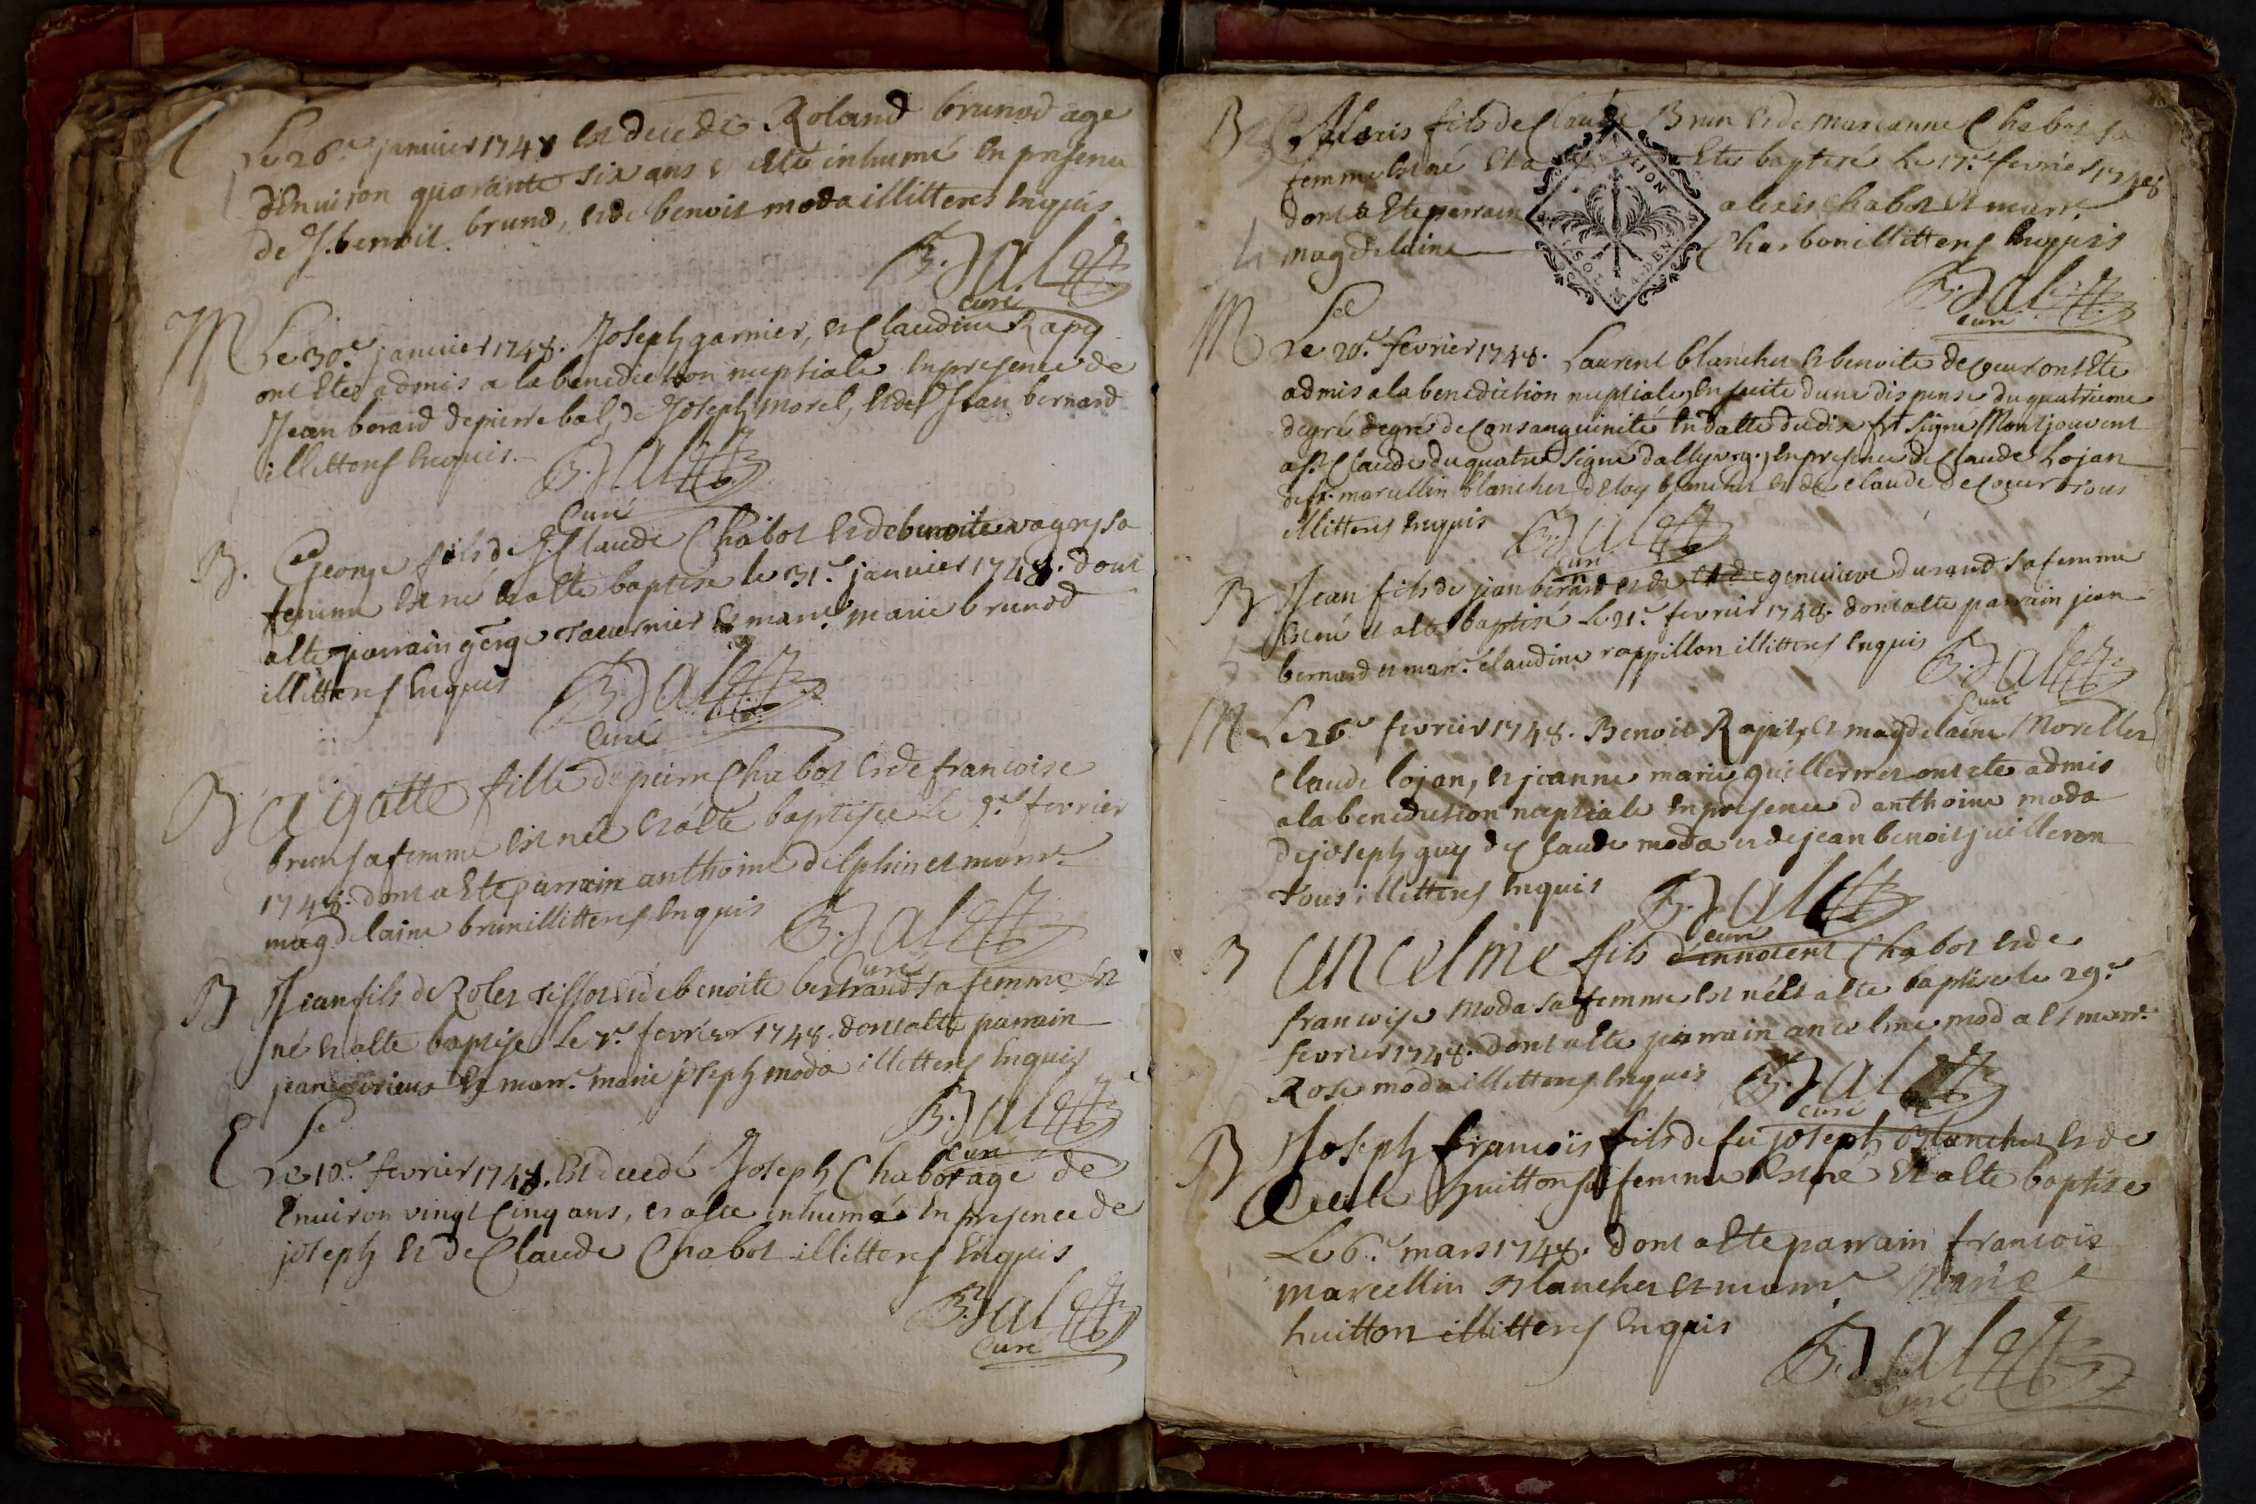 E
Le 26.e janvier 1748 est decedé Roland brunod agé
d'Environ quarante six ans et a Eté inhumé En presence
de J. benoit brunod, et de benoit moda illitteres Enquis
B. Jalet
curé
M Le 30.e janvier 1748. Joseph garnier, et Claudine Rapy
ont Etes admis a la benediction nuptiale En presence de
Jean berard de pierre bal, de Joseph morel, et de Jean bernard
illitteres Enquis.
B. Jalet
Curé
B. George fils de J. Claude Chabot et de benoite vagny sa
femme est né et a Eté baptisé le 31.e janvier 1748. dont
a Eté parrain george tavernier et marr.e marie brunod
illitteres Enquis
B. Jalet
Curé
B Agatte fille de pierre Chabot et de francoise
brun sa femme est neé et a Eté baptiseé Le 3.e fevrier
1748. dont a Eté parrain anthoine delphin et marr.e
magdelaine brun illitteres Enquis
B. Jalet
Curé
B Jean fils de Rolet tissot et de benoite bertrand sa femme est
né et a Eté baptisé Le 7.e fevrier 1748. dont a Eté parrain
jean et marr.e marie joseph moda illitteres Enquis
B. Jalet
curé
E Le
Le 10.e fevrier 1748. est decedé Joseph Chabot agé de
Environ vingt Cinq ans, et a Eté inhumé En presence de
joseph et de Claude Chabot illitteres Enquis
B. Jalet
Curé
B Alexis fils de Claude Brun et de marianne Chabot sa
femme est né et a Eté baptisé Le 17.e fevrier 1748
dont a Eté parrain alexis Chabot et marr.e
magdelaine Charbon illitteres Enquis
B. Jalet
curé
M Le
Le 20.e fevrier 1748. Laurent blanchet et benoite decoeur ont Eté
admis a la benediction nuptiale, En suite d'une dispense du quatrieme
degré degré de Consanguinité En datte du dix signé Montjouvent
a S.t Claude du quatre signé dally, En presence de Claude Lojan
de fr. marcellin blanchet, d'Eloy blanchet et de Claude decoeur tous
illitteres Enquis
B. Jalet
curé
B Jean fils de jean berard et de et de genevieve durand sa femme
Est né et a Eté baptisé Le 21.e fevrier 1748. dont a Eté parrain jean
bernard et marr.e Claudine rappillon illitteres Enquis
B. Jalet
Curé
M Le 26.e fevrier 1748. Benoit Rapit, et magdelaine Morellet
Claude lojan, et jeanne marie guillermet ont Eté admis
a la benediction nuptiale En presence d'anthoine moda
de joseph guy de Claude moda et de jean benoit guilleron
tous illitteres Enquis
B. Jalet
curé
B ancelme fils d'innocent Chabot et de
francoise Moda sa femme est né et a Eté baptisé le 29.e
fevrier 1748. dont a Eté parrain ancelme moda et marr.e
Rose moda illitteres Enquis
B. Jalet
curé
B Joseph francois fils de feu joseph Blanchet et de
Cecile huitton sa femme Est né et a Eté baptisé
Le 6.e mars 1748. dont a Eté parrain francois
marcellin Blanchet et marr.e Marie
huitton illitteres Enquis
B. Jalet
Curé